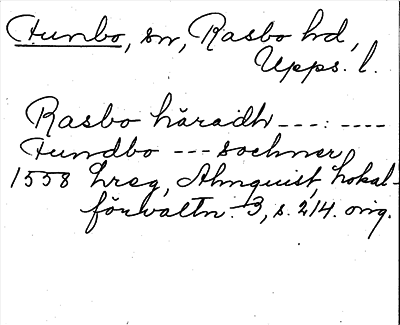 Tunbo, sn, Rasbo hd,
Upps. l.
Rasbo häradh ---: ----
Tundbo --- sochner
1558 hreg, Almquist, Lokal-
förvaltn. 3, s. 214. orig.